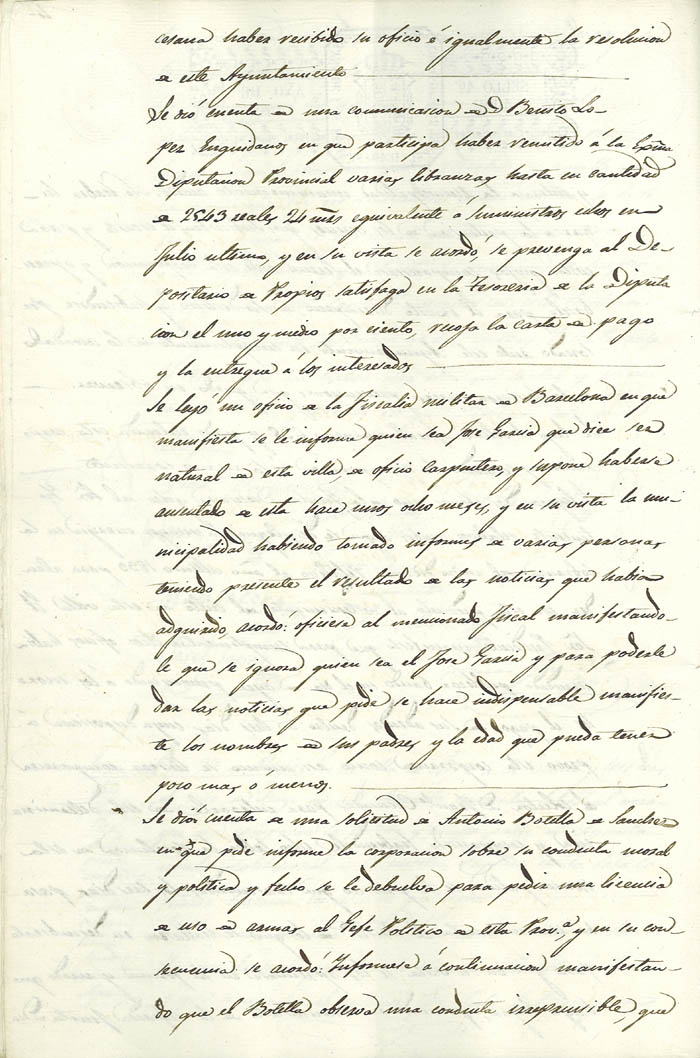 cesana haber recibido su oficio é igualmente la resolucion
de este Ayuntamiento
Se dió cuenta de una comunicacion de D Benito Lo-
pez Enguidanos en que participa haber remitido á la Exma
Diputacion Provincial varias libranzas hasta en cantidad
de 2543 reales 24 mrs equivalente á suministros echos en
Julio ultimo, y en su vista se acordó, se prevenga al De-
positario de Propios satisfaga en la Tesoreria de la Diputa
cion el uno y medio por ciento, recoja la carta de pago
y la entregue á los interesados
Se leyó un oficio de la Fiscalia militar de Barcelona en que
manifiesta se le informe quien sea Jose Garcia que dice ser
natural de esta villa, de oficio Carpintero, y supone haberse
ausentado de esta hace unos ocho meses, y en su vista la mu-
nicipalidad habiendo tomado informes de varias personas
teniendo presente el resultado de las noticias que habian
adquirido acordó: oficiese al mencionado fiscal manifestando-
le que se ignora quien sea el Jose Garcia y para poderle
dar las noticias que pide se hace indispensable manifies-
te los nombres de sus padres y la edad que pueda tener
poco mas ó menos.
Se dió cuenta de una solicitud de Antonio Botella de Sanchez
en que pide informe la corporacion sobre su conducta moral
y politica y fecho se le debuelva para pedir una licencia
de uso de armas al Gefe Politico de esta Prov.ª, y en su con-
secuencia se acordó: Informese á continuacion manifestan-
do que el Botella observa una conducta irreprensible, que